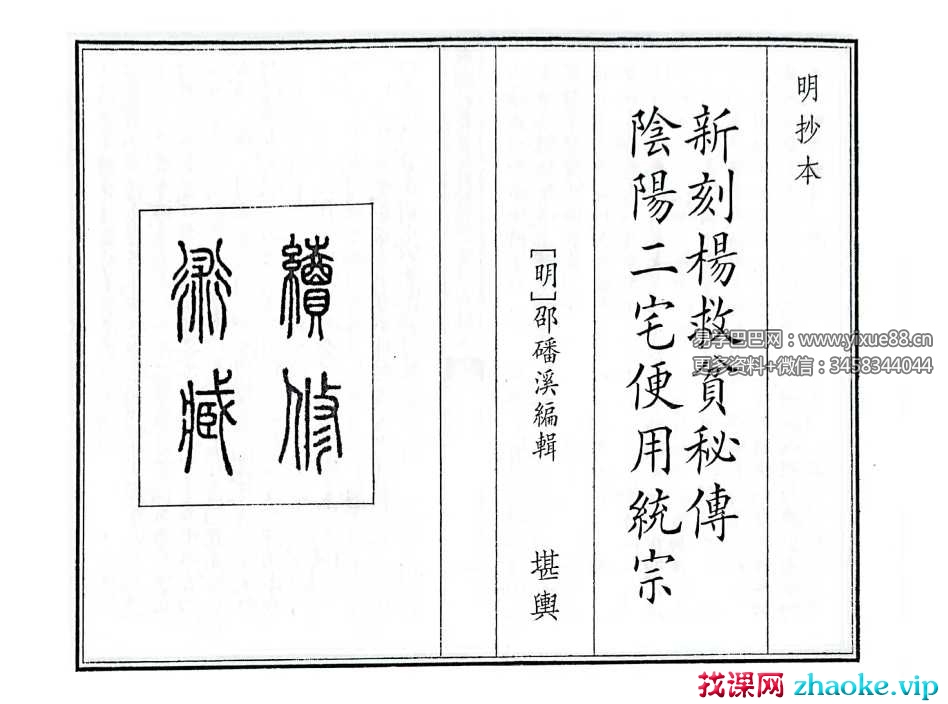 明抄本
新刻楊救貧秘傳
陰陽二宅便用統宗
[明]邵磻溪編輯 堪輿
續修
術藏
易学巴巴网：www.yixue88.cn
更多资料+微信：3458344044
找课网 zhaoke.vip